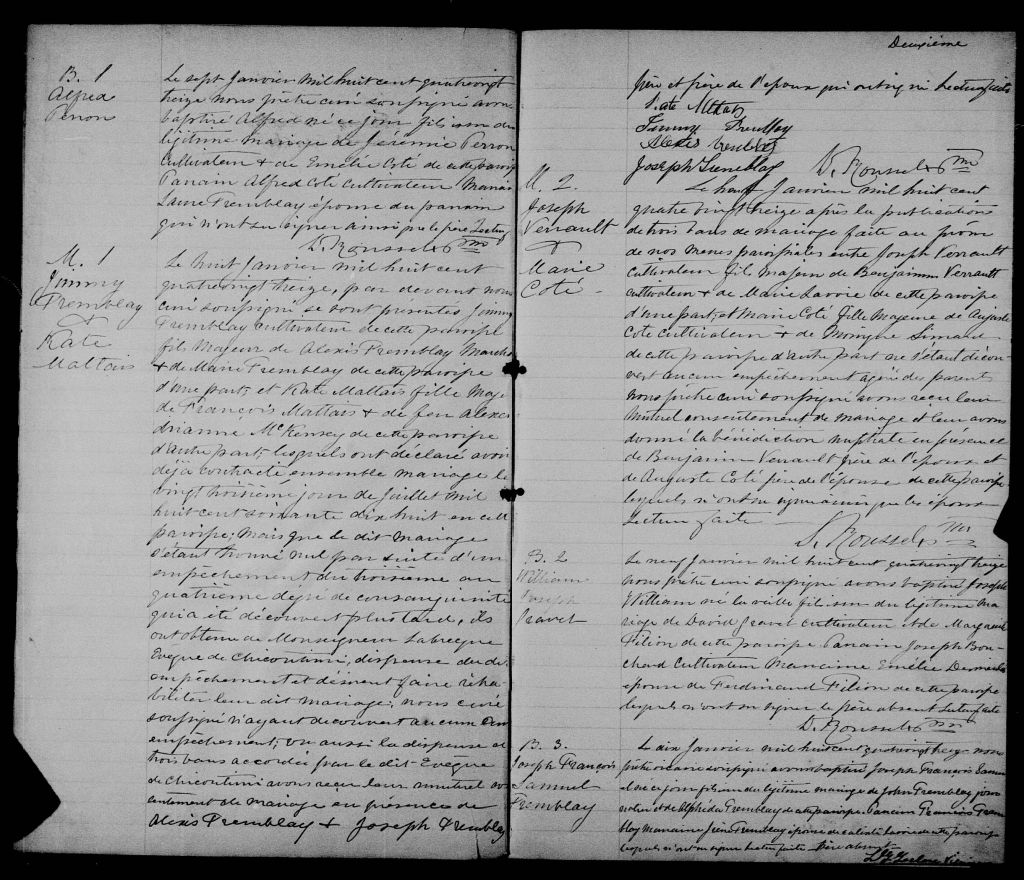 B. 1
Alfred
Perron
Le sept Janvier mil huit cent quatrevingt
treize nous prêtre curé soussigné avons
baptisé Alfred né ce jour fils issu du
légitime mariage de Jérémie Perron
cultivateur & de Emélie Coté de cette paroisse
Parrain Alfred Coté cultivateur Marraine
Laure Tremblay épouse du parrain
qui n'ont su signer ainsi que le père Lecture
D. Roussel ptre
M. 1
Jimmy
Tremblay
&
Kate
Maltais
Le huit Janvier mil huit cent
quatrevingt treize, par devant nous
curé soussigné se sont présentés Jimmy
Tremblay cultivateur de cette paroisse
fils Majeur de Alexis Tremblay March
& de Marie Tremblay de cette paroisse
d'une part; et Kate Maltais fille Maje
de François Maltais & de feu Alexan
drianne McKensey de cette paroisse
d'autre part; lesquels ont déclaré avoir
déjà contracté ensemble mariage le
vingt troisième jour de Juillet mil
huit cent soixante dix huit en cette
paroisse; Mais que le dit mariage
s'étant trouvé nul par suite d'un
empêchement du troisième au
quatrième dégré de consanguinité
qui a été découvert plus tard, ils
ont obtenu de Monseigneur Labrecque
Evêque de Chicoutimi, dispense du dit
empêchement et désirent faire réha-
biliter leur dit mariage; nous curé
soussigné n'ayant découvert aucun autre
empêchement; vu aussi la dispense de
trois bans accordée par le dit Evêque
de Chicoutimi avons reçu leur mutuel con
sentement de mariage en présence de
Alexis Tremblay & Joseph Tremblay
Deuxième
père et frère de l'époux qui ont signé Lecture faite
Kate Maltais
Jimmy Tremblay
Alexis Tremblay
Joseph Tremblay
D. Roussel ptre
M. 2.
Joseph
Verrault
&
Marie
Coté
Le neuf Janvier mil huit cent
quatre vingt treize après la publication
de trois bans de mariage faite au prône
de nos messes paroissiales entre Joseph Verrault
cultivateur fils majeur de Benjamin Verrault
cultivateur & de Marie Lavoie de cette paroisse
d'une part; et Marie Coté fille Majeure de Auguste
Coté cultivateur & de Simard
de cette paroisse d'autre part ne s'étant décou-
vert aucun empêchement agréé des parents
nous prêtre curé soussigné avons reçu leur
mutuel consentement de mariage et leur avons
donné la bénédiction nuptiale en présence
de Benjamin Verrault père de l'époux et
de Auguste Coté père de l'épouse de cette paroisse
lesquels n'ont su signer ainsi que les époux
Lecture faite
D. Roussel ptre
B. 2
William
Joseph
Gravel
Le neuf Janvier mil huit cent quatrevingt treize
nous prêtre curé soussigné avons baptisé Joseph
William né la veille fils issu du légitime ma
riage de David Gravel cultivateur & de Margaret
Filion de cette paroisse Parrain Joseph Bou-
chard Cultivateur Marraine Emélie Desmeules
épouse de Ferdinand Filion de cette paroisse
lesquels n'ont su signer le père absent Lecture faite
D. Roussel ptre
B. 3.
Joseph François
Samuel
Tremblay
Le dix Janvier mil huit cent quatrevingt treize nous
prêtre vicaire soussigné avons baptisé Joseph François Samuel
né ce jour fils issu du légitime mariage de John Tremblay jour
nalier & de Alphéda Tremblay de cette paroisse. Parrain François Trem
blay Marraine Tremblay épouse de Lavoie de cette paroisse
lesquels n'ont su signer Lecture faite Père absent